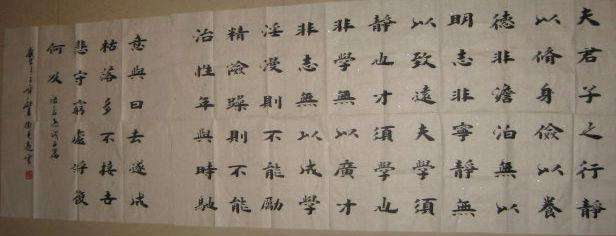 夫君子之行靜
以脩身儉以養
德非澹泊無以
明志非寧靜無
以致遠夫學須
靜也才須學也
非學無以廣才
非志無以成學
淫漫則不能勵
精險躁則不能
冶性年與時馳
意與日去遂成
枯落多不接世
悲守窮廬將復
何及